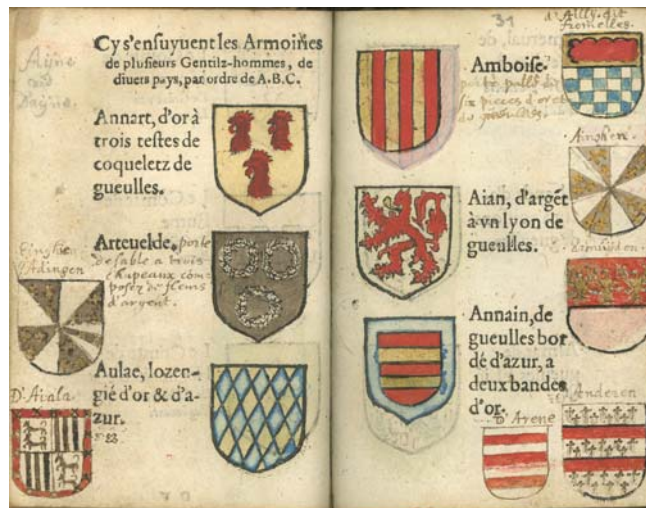 Cy s'ensuyuent les Armoiries
de plusieurs Gentilz-hommes, de
diuers pays, par ordre de A.B.C.
Annart, d'or à
trois testes de
coqueletz de
gueulles.
Arteuelde. porte
de sable a trois
chapeaux com
posez de fleurs
d'argent.
Aulae, lozen-
gié d'or & d'a-
zur.
D'Aiala.
31
d'Ailly. dit
Amboise.
porte pallé de
six pieces d'or et
de gueulles.
Ainghen.
Aian, d'argẽt
à vn lyon de
gueulles.
Annain, de
gueulles bor
dé d'azur, a
deux bandes
d'or.
D'Arene